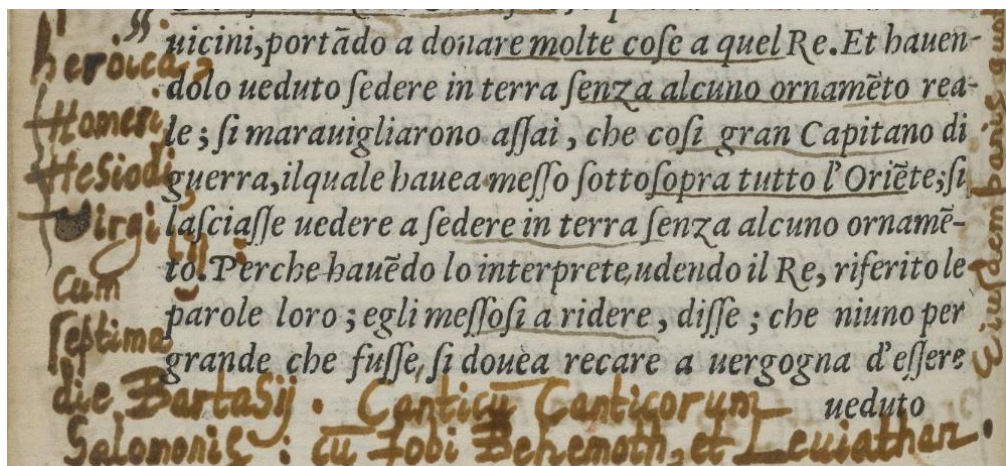 uicini, portãdo a donare molte coſe a quel Re. Et hauen-
dolo ueduto ſedere in terra ſenza alcuno ornamẽto rea-
le; ſi marauigliarono aſſai, che coſi gran Capitano di
guerra, ilquale hauea meſſo ſottoſopra tutto l'Oriẽte; ſi
laſciaſſe uedere a ſedere in terra ſenza alcuno ornamẽ-
to. Perche hauẽdo lo interprete, udendo il Re, riferito le
parole loro; egli meſſoſi a ridere, diſſe; che niuno per
grande che fuſſe, ſi douea recare a uergogna d'eſſere
ueduto
heroica,
Homeri
Hesiodi
Virgilij:
cum
septima
die Bartasij. Canticũ Canticorum
Salomonis: cũ Jobi Behemoth, et Leuiathan.
Eiusdem